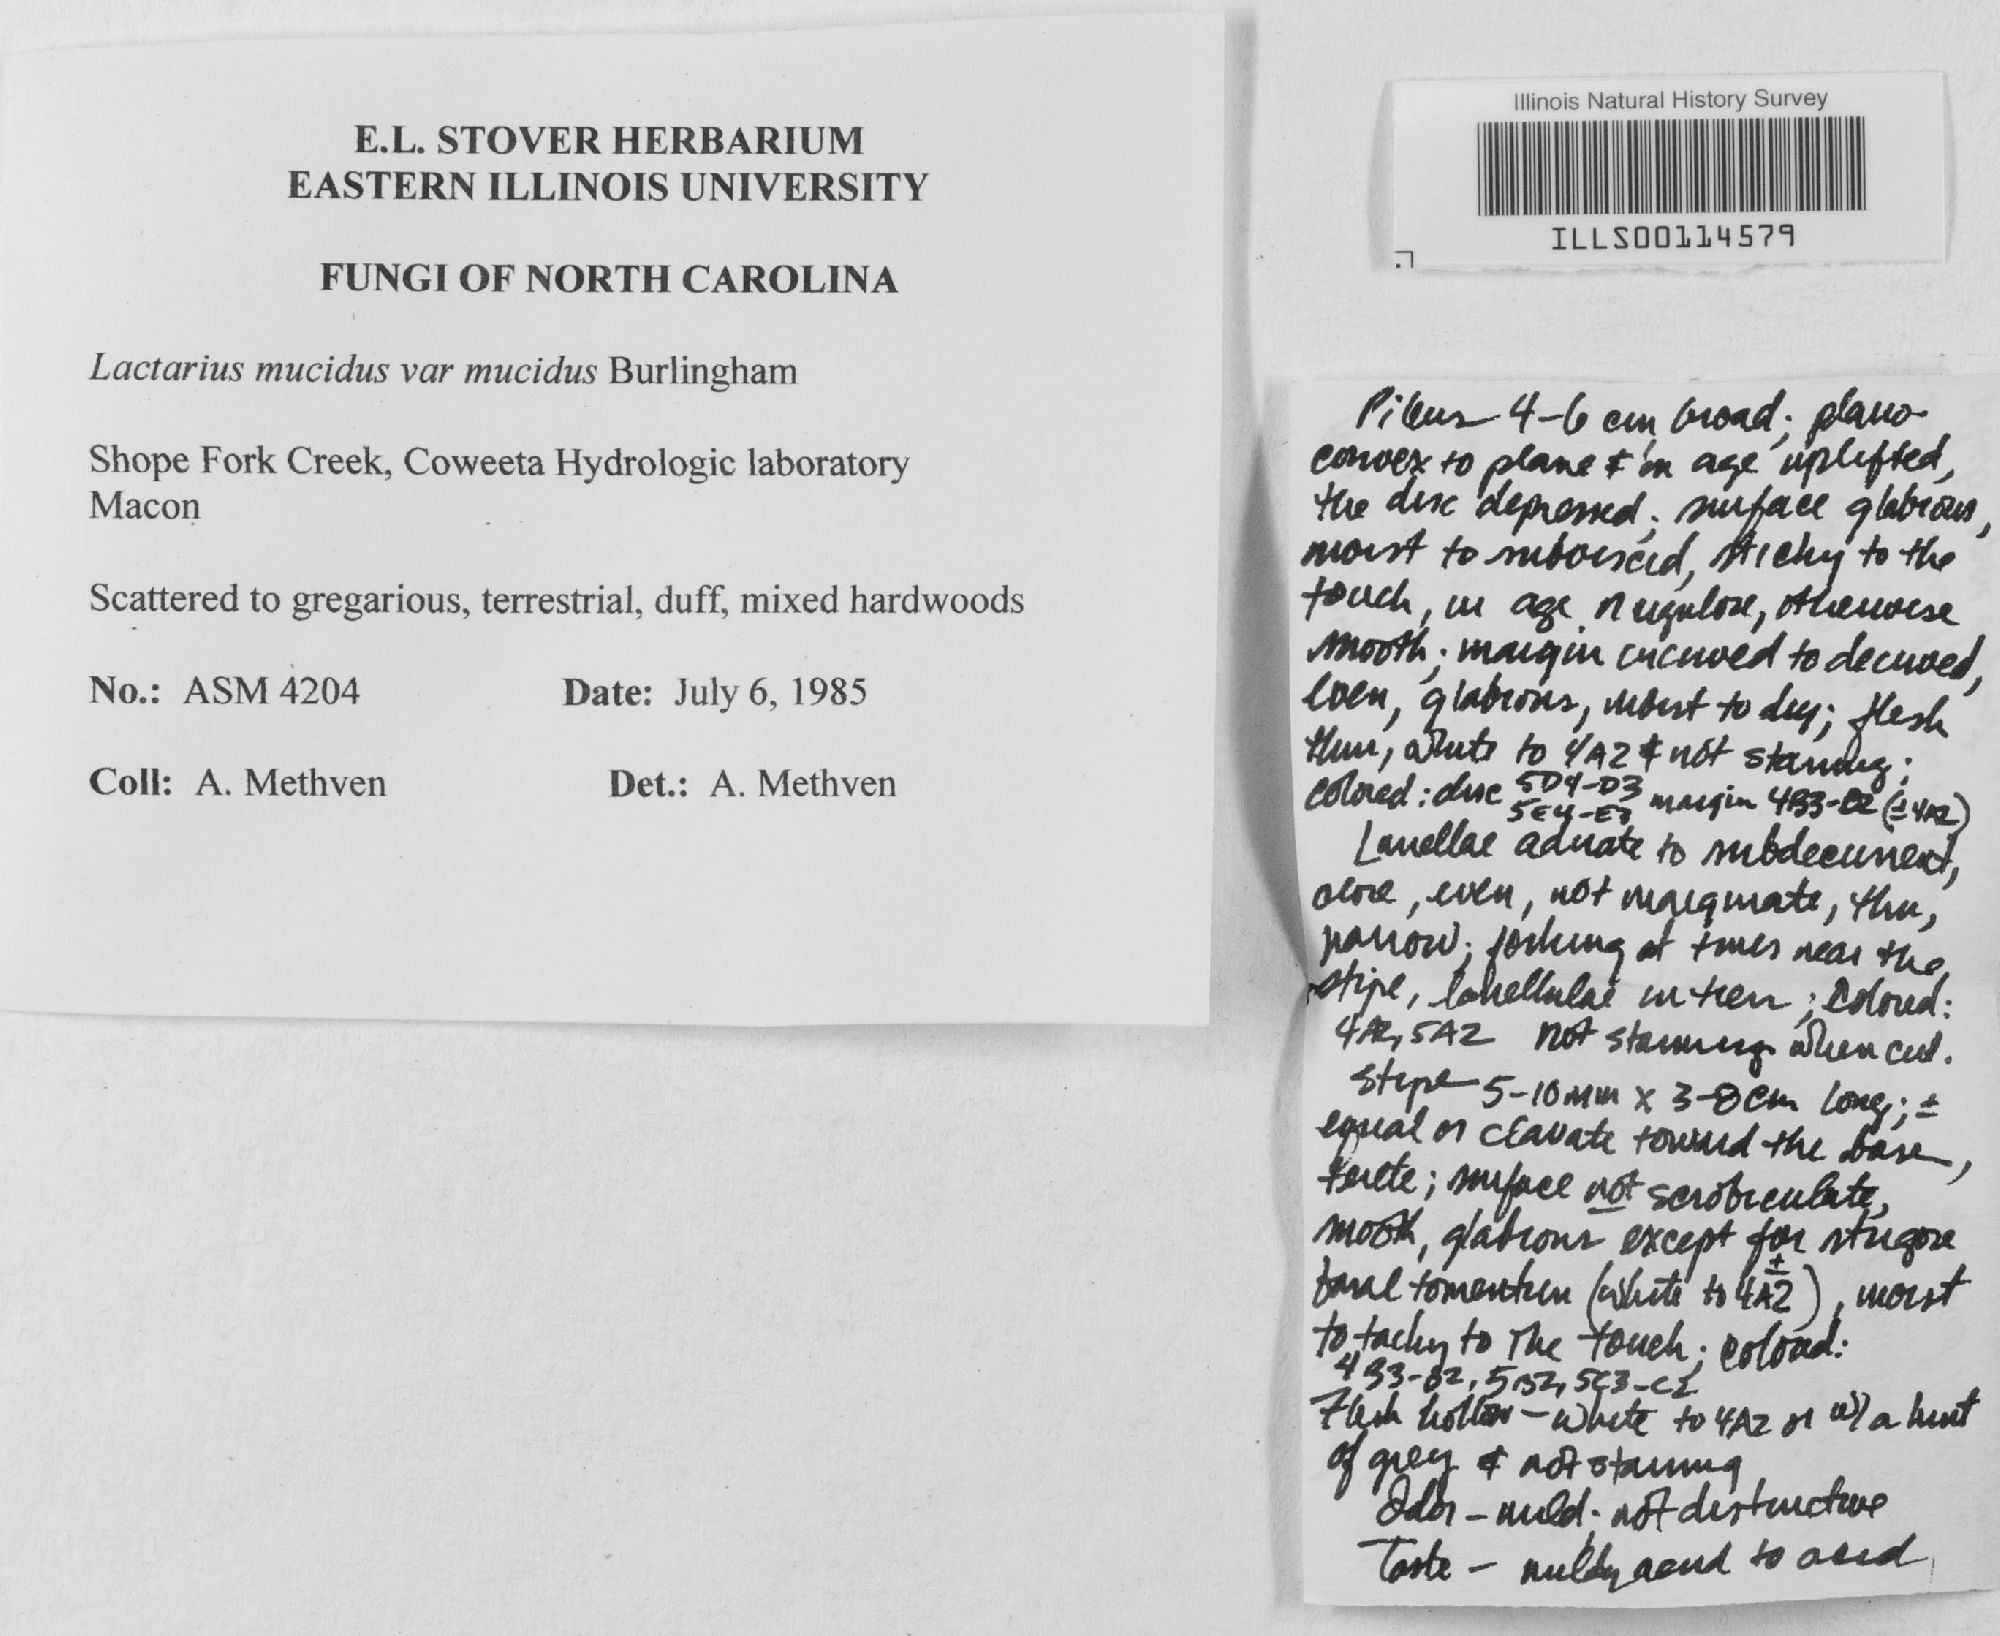 E.L. STOVER HERBARIUM
EASTERN ILLINOIS UNIVERSITY
FUNGI OF NORTH CAROLINA
Lactarius mucidus var mucidus Burlingham
Shope Fork Creek, Coweeta Hydrologic laboratory
Macon
Scattered to gregarious, terrestrial, duff, mixed hardwoods
No.: ASM 4204 Date: July 6, 1985
Coll: A. Methven Det.: A. Methven
Illinois Natural History Survey
ILLS00114579
Pileus 4-6 cm broad; plano-
convex to plane & in age uplifted,
the disc depressed; surface glabrous,
moist to subviscid, sticky to the
touch, in age rugulose, otherwise
smooth; margin incurved to decurved,
even, glabrous, moist to dry; flesh
thin, white to 4A2 & not staining;
colored: disc 5D4-D3 5E4-E3 margin 4B3-B2 (±4A2)
Lamellae adnate to subdecurrent,
close, even, not marginate, thin,
narrow; forking at times near the
stipe, lamellulae in tiers; colored:
4A2, 5A2 not staining when cut.
Stipe 5-10 mm x 3-8 cm long; ±
equal or clavate toward the base,
terete; surface not scrobiculate,
smooth, glabrous except for strigose
basal tomentum (white to ± 4A2), moist
to tacky to the touch; colored:
4B3-B2, 5B2, 5C3-C2
Flesh hollow - white to 4A2 or w/ a hint
of grey & not staining
Odor - mild; not distinctive
Taste - mildly acrid to acrid